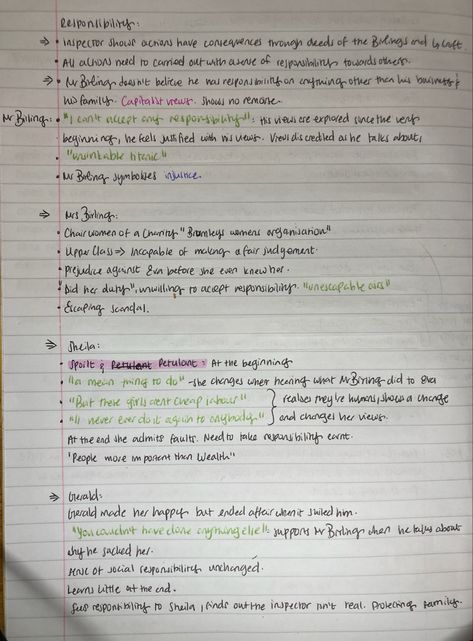 Responsibility:
⇒ • Inspector shows actions have consequences through deeds of the Birlings and by Croft
• All actions need to carried out with a sense of responsibility towards others.
⇒ • Mr Birling doesn't believe he has responsibility on anything other than his business &
his family. Capitalist views. Shows no remorse.
Mr Birling: • "I can't accept any responsibility": His views are explored since the very
beginning, he feels justified with his views. Views discredited as he talks about,
• "unsinkable titanic"
• Mr Birling symbolises injustice.
⇒ Mrs Birling:
• Chair women of a Charity "Brumleys womens organisation"
• Upper Class ⇒ Incapable of making a fair judgement.
• Prejudice against Eva before she even knew her.
• "Did her duty", unwilling to accept responsibility.
• Escaping scandal.
⇒ Sheila:
• Spoilt & Petulant: At the beginning
• "a mean thing to do" - she changes when hearing what Mr Birling did to Eva
• "But these girls arent cheap labour" } realises they're humans, shows a change
• "I'll never ever do it again to anybody" } and changes her views.
At the end she admits faults. Need to take responsibility
'People more important than wealth"
⇒ Gerald:
Gerald made her happy but ended affair when it suited him.
"You couldn't have done anything else": supports Mr Birling when he talks about
why he sacked her.
sense of social responsibility unchanged.
Learns little at the end.
responsibility to Sheila, finds out the inspector isn't real. Protecting family.